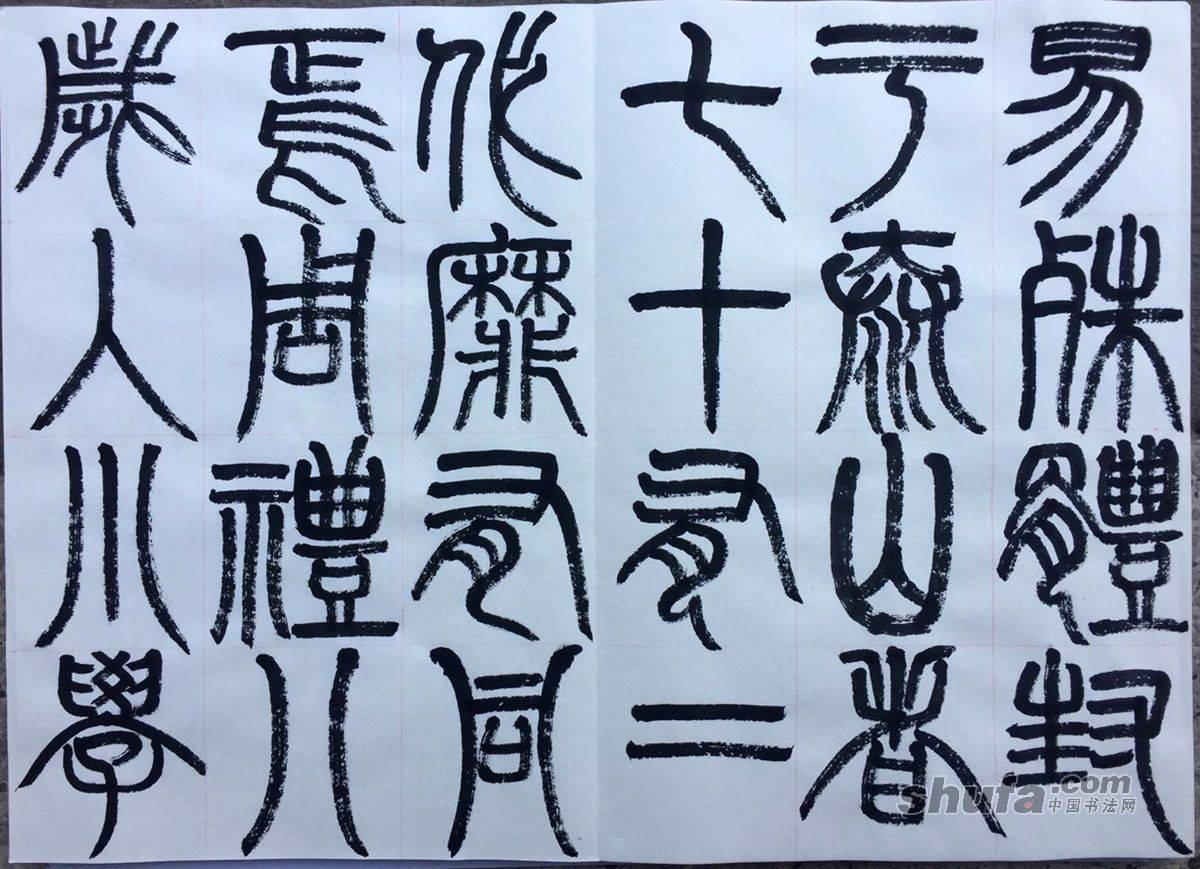 易殊體封
于泰山者
七十有二
代靡有同
焉周禮八
歲入小學
shufa.com
中国书法网